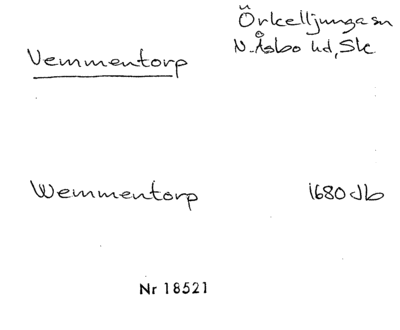 Vemmentorp
Örkelljunga sn
N. Åsbo hd, Sk
Wemmentorp
1680 Jb
Nr 18521